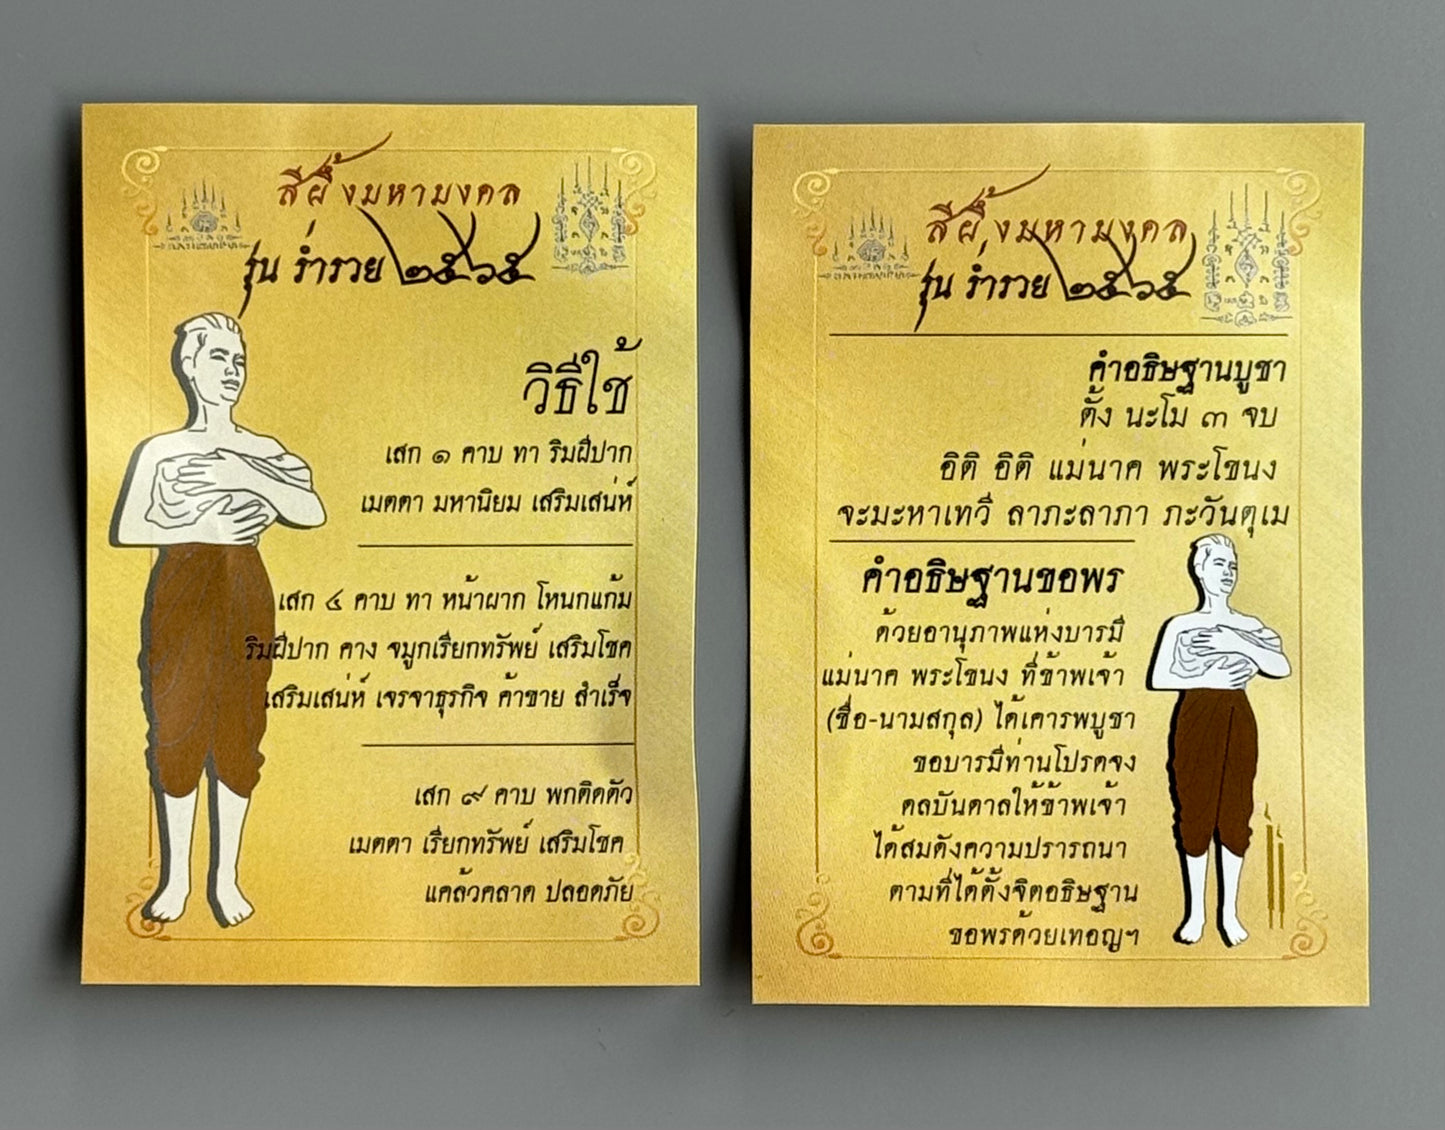 สีผึ้งมหามงคล
รุ่น ร่ำรวย ๒๕๖๕
วิธีใช้
เสก ๑ คาบ ทา ริมฝีปาก
เมตตา มหานิยม เสริมเสน่ห์
เสก ๔ คาบ ทา หน้าผาก โหนกแก้ม
ริมฝีปาก คาง จมูกเรียกทรัพย์ เสริมโชค
เสริมเสน่ห์ เจรจาธุรกิจ ค้าขาย สำเร็จ
เสก ๙ คาบ พกติดตัว
เมตตา เรียกทรัพย์ เสริมโชค
แคล้วคลาด ปลอดภัย
สีผึ้งมหามงคล
รุ่น ร่ำรวย ๒๕๖๕
คำอธิษฐานบูชา
ตั้ง นะโม ๓ จบ
อิติ อิติ แม่นาค พระโขนง
จะมะหาเทวี ลาภะลาภา ภะวันตุเม
คำอธิษฐานขอพร
ด้วยอานุภาพแห่งบารมี
แม่นาค พระโขนง ที่ข้าพเจ้า
(ชื่อ-นามสกุล) ได้เคารพบูชา
ขอบารมีท่านโปรดจง
ดลบันดาลให้ข้าพเจ้า
ได้สมดังความปรารถนา
ตามที่ได้ตั้งจิตอธิษฐาน
ขอพรด้วยเทอญฯ